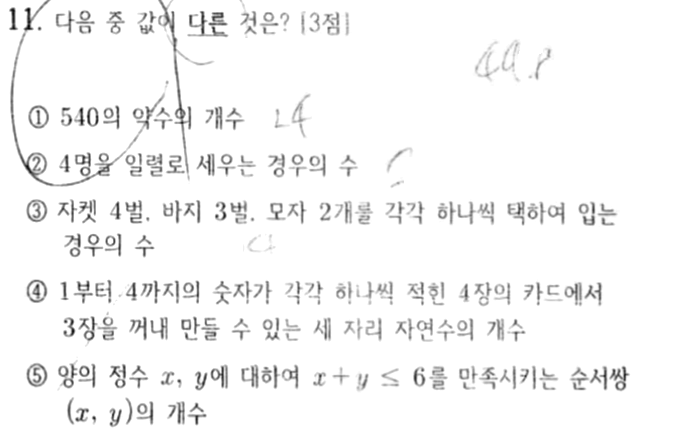 11. 다음 중 값이 다른 것은? [3점]
① 540의 약수의 개수 24
② 4명을 일렬로 세우는 경우의 수
③ 자켓 4벌, 바지 3벌, 모자 2개를 각각 하나씩 택하여 입는
경우의 수
④ 1부터 4까지의 숫자가 각각 하나씩 적힌 4장의 카드에서
3장을 꺼내 만들 수 있는 세 자리 자연수의 개수
⑤ 양의 정수 x, y에 대하여 x+y ≤ 6를 만족시키는 순서쌍
(x, y)의 개수